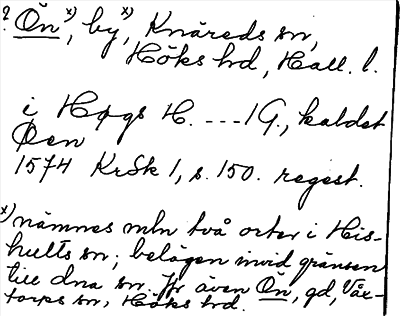 ? Ön x), by x), Knäreds sn,
Höks hd, Hall. l.
i Høgs H. --- 1 G., kaldet
Øen
1574 KrSk 1, s. 150. regest.
x) nämnes mln två orter i His-
hults sn; belägen invid gränsen
till dna sn. Jfr även Ön, gd, Våx-
torps sn, Höks hd.